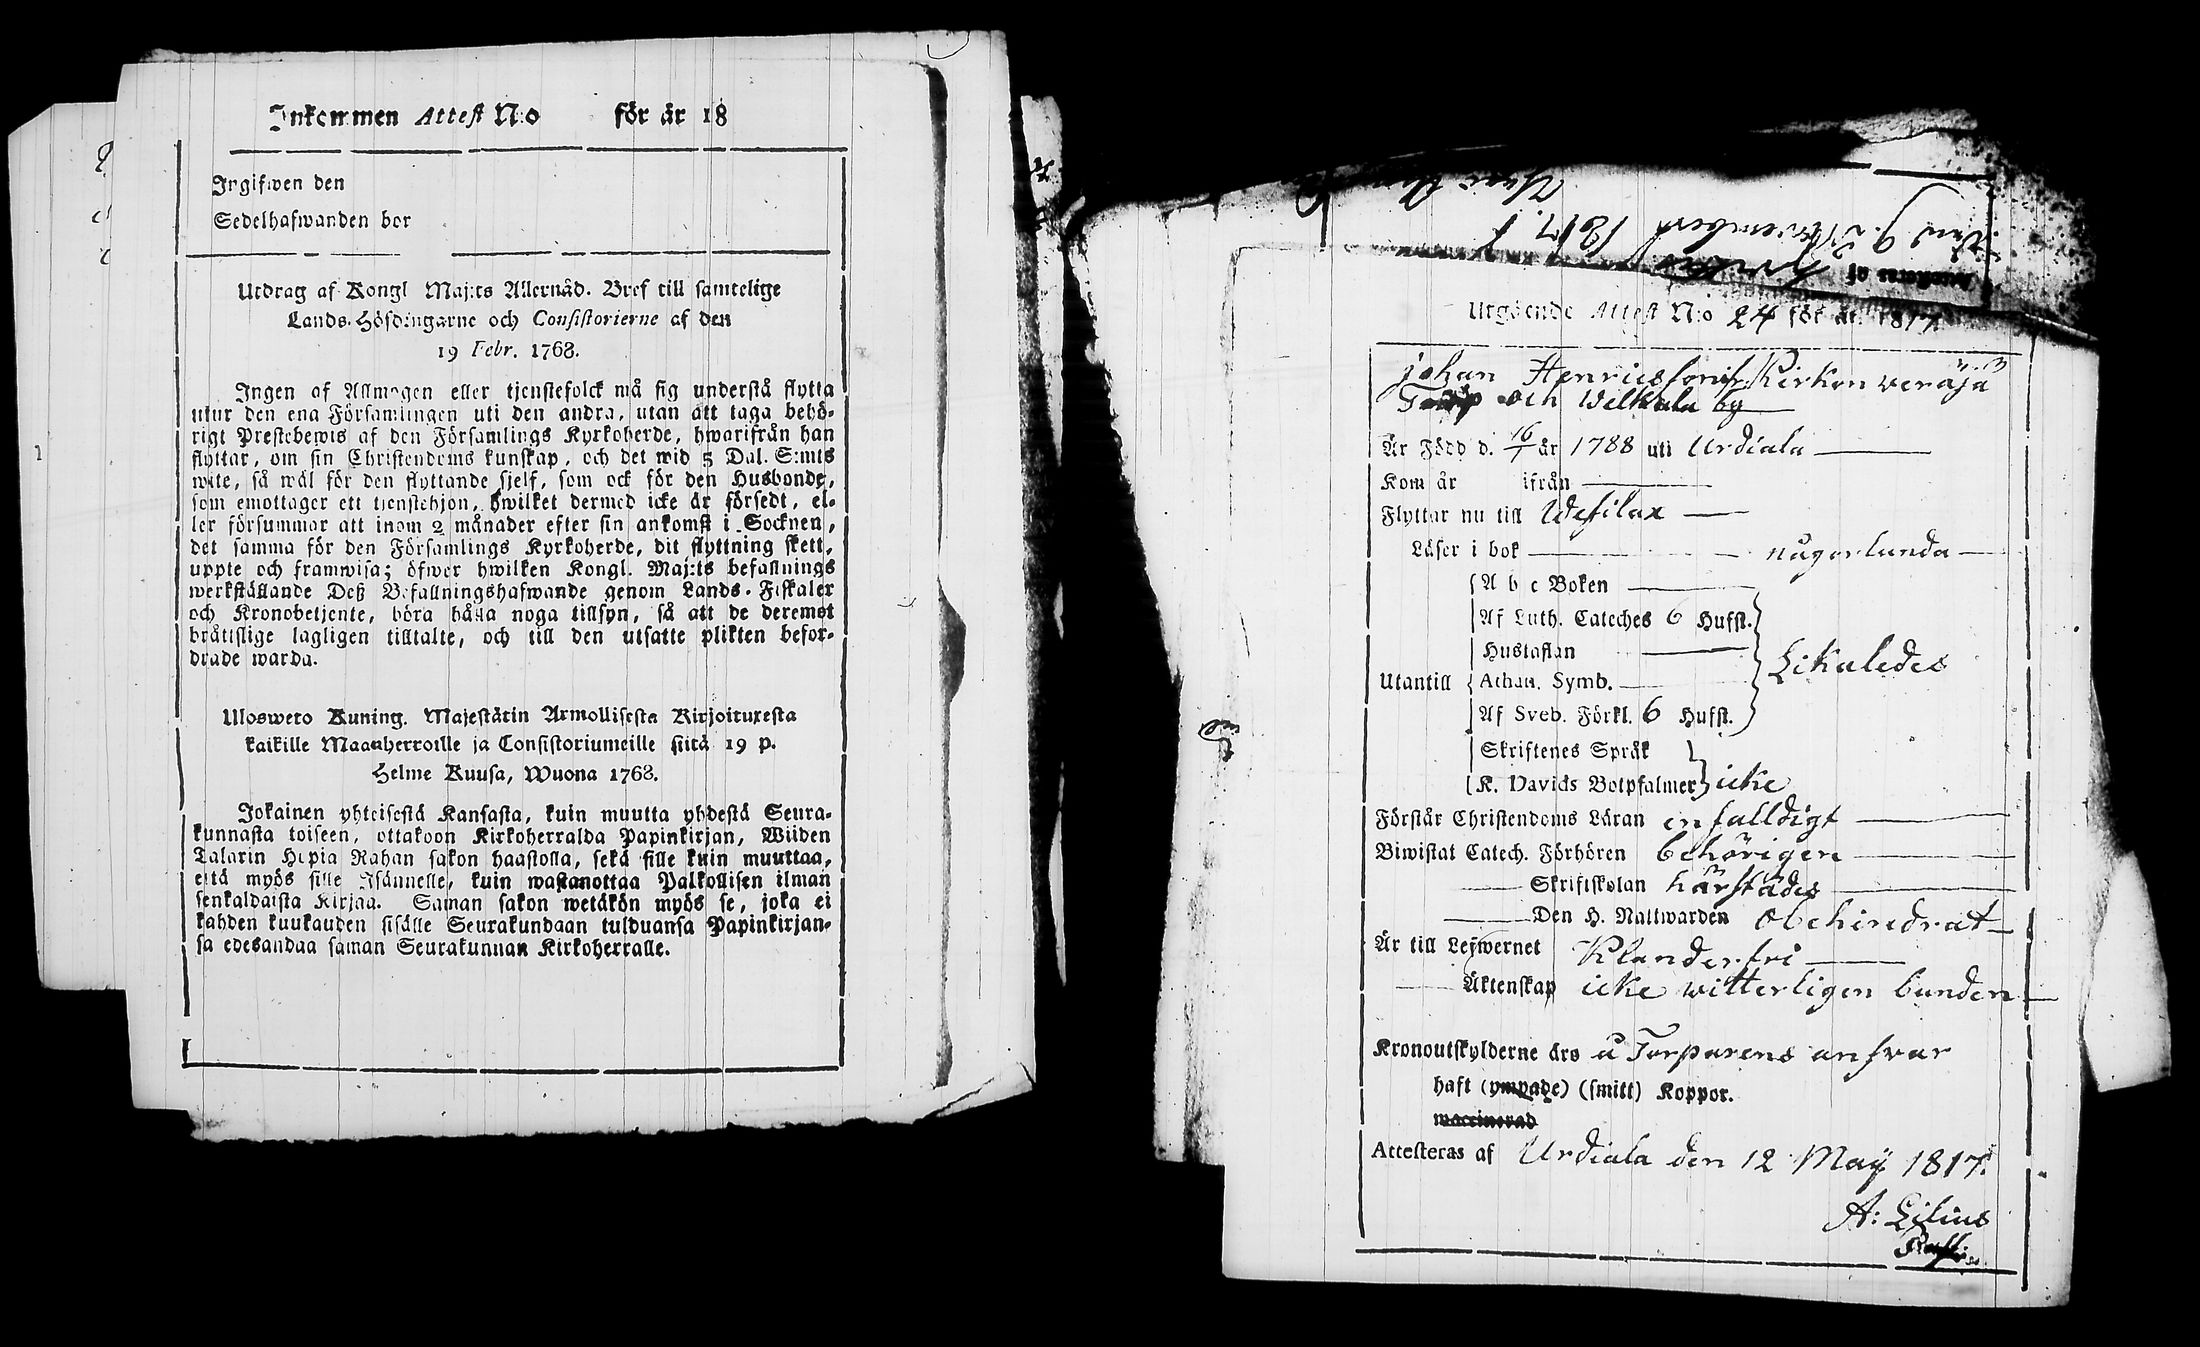 Inkommen Attest N:o för år 18
Ingifwen den
Sedelhafwanden bor
Utdrag af Kongl Maj:ts Allernåd. Bref till samtelige
Lands-Höfdingarne och Consistorierne af den
19 Febr. 1768.
Ingen af Allmogen eller tjenstefolck må sig understå flytta
utur den ena Församlingen uti den andra, utan att taga behö-
rigt Prestebewis af den Församlings Kyrkoherde, hwarifrån han
flyttar, om sin Christendoms kunskap, och det wid 5 Dal. S:mts
wite, så wäl för den flyttande sjelf, som ock för den Husbonde,
som emottager ett tjenstehjon, hwilket dermed icke är försedt, el-
ler försummar att inom 2 månader efter sin ankomst i Socknen,
det samma för den Församlings Kyrkoherde, dit flyttning skett,
uppte och framwisa; öfwer hwilken Kongl. Maj:ts befallnings
werkställande Deß Befallningshafwande genom Lands-Fiskaler
och Kronobetjente, böra hålla noga tillsyn, så att de deremot
bråttslige lagligen tilltalte, och till den utsatte plikten befor-
drade warda.
Ulosweto Kuning. Majestätin Armollisesta Kirjoituxesta
kaikille Maanherroille ja Consistoriumeille siitä 19 p.
Helme Kuusa, Wuona 1768.
Jokainen yhteisestä Kansasta, kuin muutta yhdestä Seura-
kunnasta toiseen, ottakoon Kirkoherralda Papinkirjan, Wiiden
Talarin Hopia Rahan sakon haastolla, sekä sille kuin muuttaa,
että myös sille Isännelle, kuin wastanottaa Palkollisen ilman
senkaldaista Kirjaa. Saman sakon wetäkön myös se, joka ei
kahden kuukauden sisälle Seurakundaan tulduansa Papinkirjan-
sa edesandaa saman Seurakunnan Kirkoherralle.
den 9 November 1817
Attesteras af
Utgående Attest N:o 24 för år 1817
Johan Henricsson fr. Kirkon weräjä
Torp och Welkala by
Är Född d. 16/1 år 1788 uti Urdiala
Kom år ifrån
Flyttar nu till Wesilax
Läser i bok någorlunda
A b c Boken
Af Luth. Cateches 6 Hufst.
Hustaflan
Utantill Athan. Symb. Likaledes
Af Sveb. Förkl. 6 Hufst.
Skriftenes Språk
K. Davids Botpsalmer icke
Förstår Christendoms Läran enfalldigt
Biwistat Catech. Förhören behörigen
Skriftskolan härstädes
Den H. Nattwarden obehindrat
Är till Lefwernet Klanderfri
Äktenskap icke witterligen bunden
Kronoutskylderne äro å Torparens answar
haft (ympade) (smitt) Koppor.
waccinerad
Attesteras af Urdiala den 12 Maÿ 1817.
A: Lilius